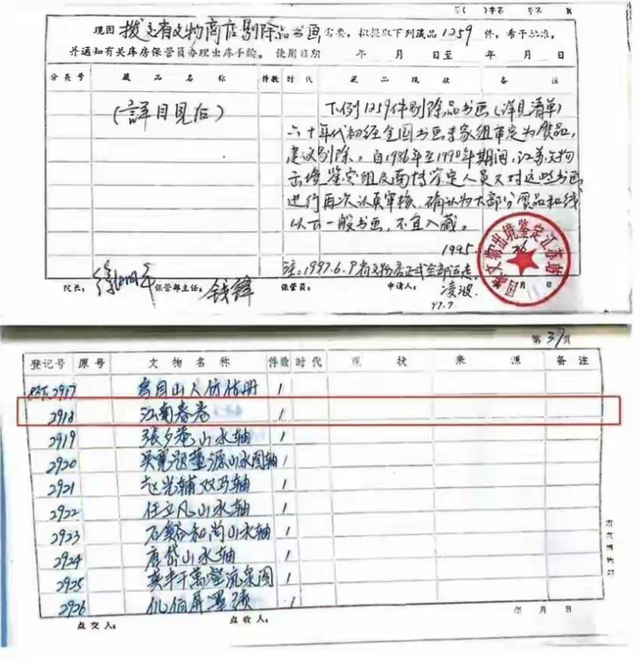 现因 拨交省文物商店剔除品书画 需要，拟提取下列藏品 1259 件，希予批准，
并通知有关库房保管员办理出库手续。 使用日期 年 月 日至 年 月 日
分类号 藏品名称 件数 时代 藏品现状 备注
(詳目見后)
下列1259件剔除品书画(详见清单)
六十年代初经全国书画专家组审定为赝品，
建议剔除。自1986年至1990年期间，江苏文物
出境鉴定组及南博鉴定人员又对这些书画
进行再次认真审核，确认为大部分赝品和线
以下一般书画，不宜入藏。
1995.
注：1997.6.
院长： 保管部主任： 钱锋 保管员： 申请人： 凌波
97.7
文物出境鉴定江苏站
第 37 页
登记号 原号 文物名称 件数 时代 现状 来源 备注
2917 山人仿 册 1
2918 江南春卷 1
2919 張夕菴山水轴 1
2920 山水图轴 1
2921 双马轴 1
2922 任立凡山水轴 1
2923 石谿和尚山水轴 1
2924 唐岱山水轴 1
2925 流泉图 1
2926 1
年 月 日
点交人： 点收人：